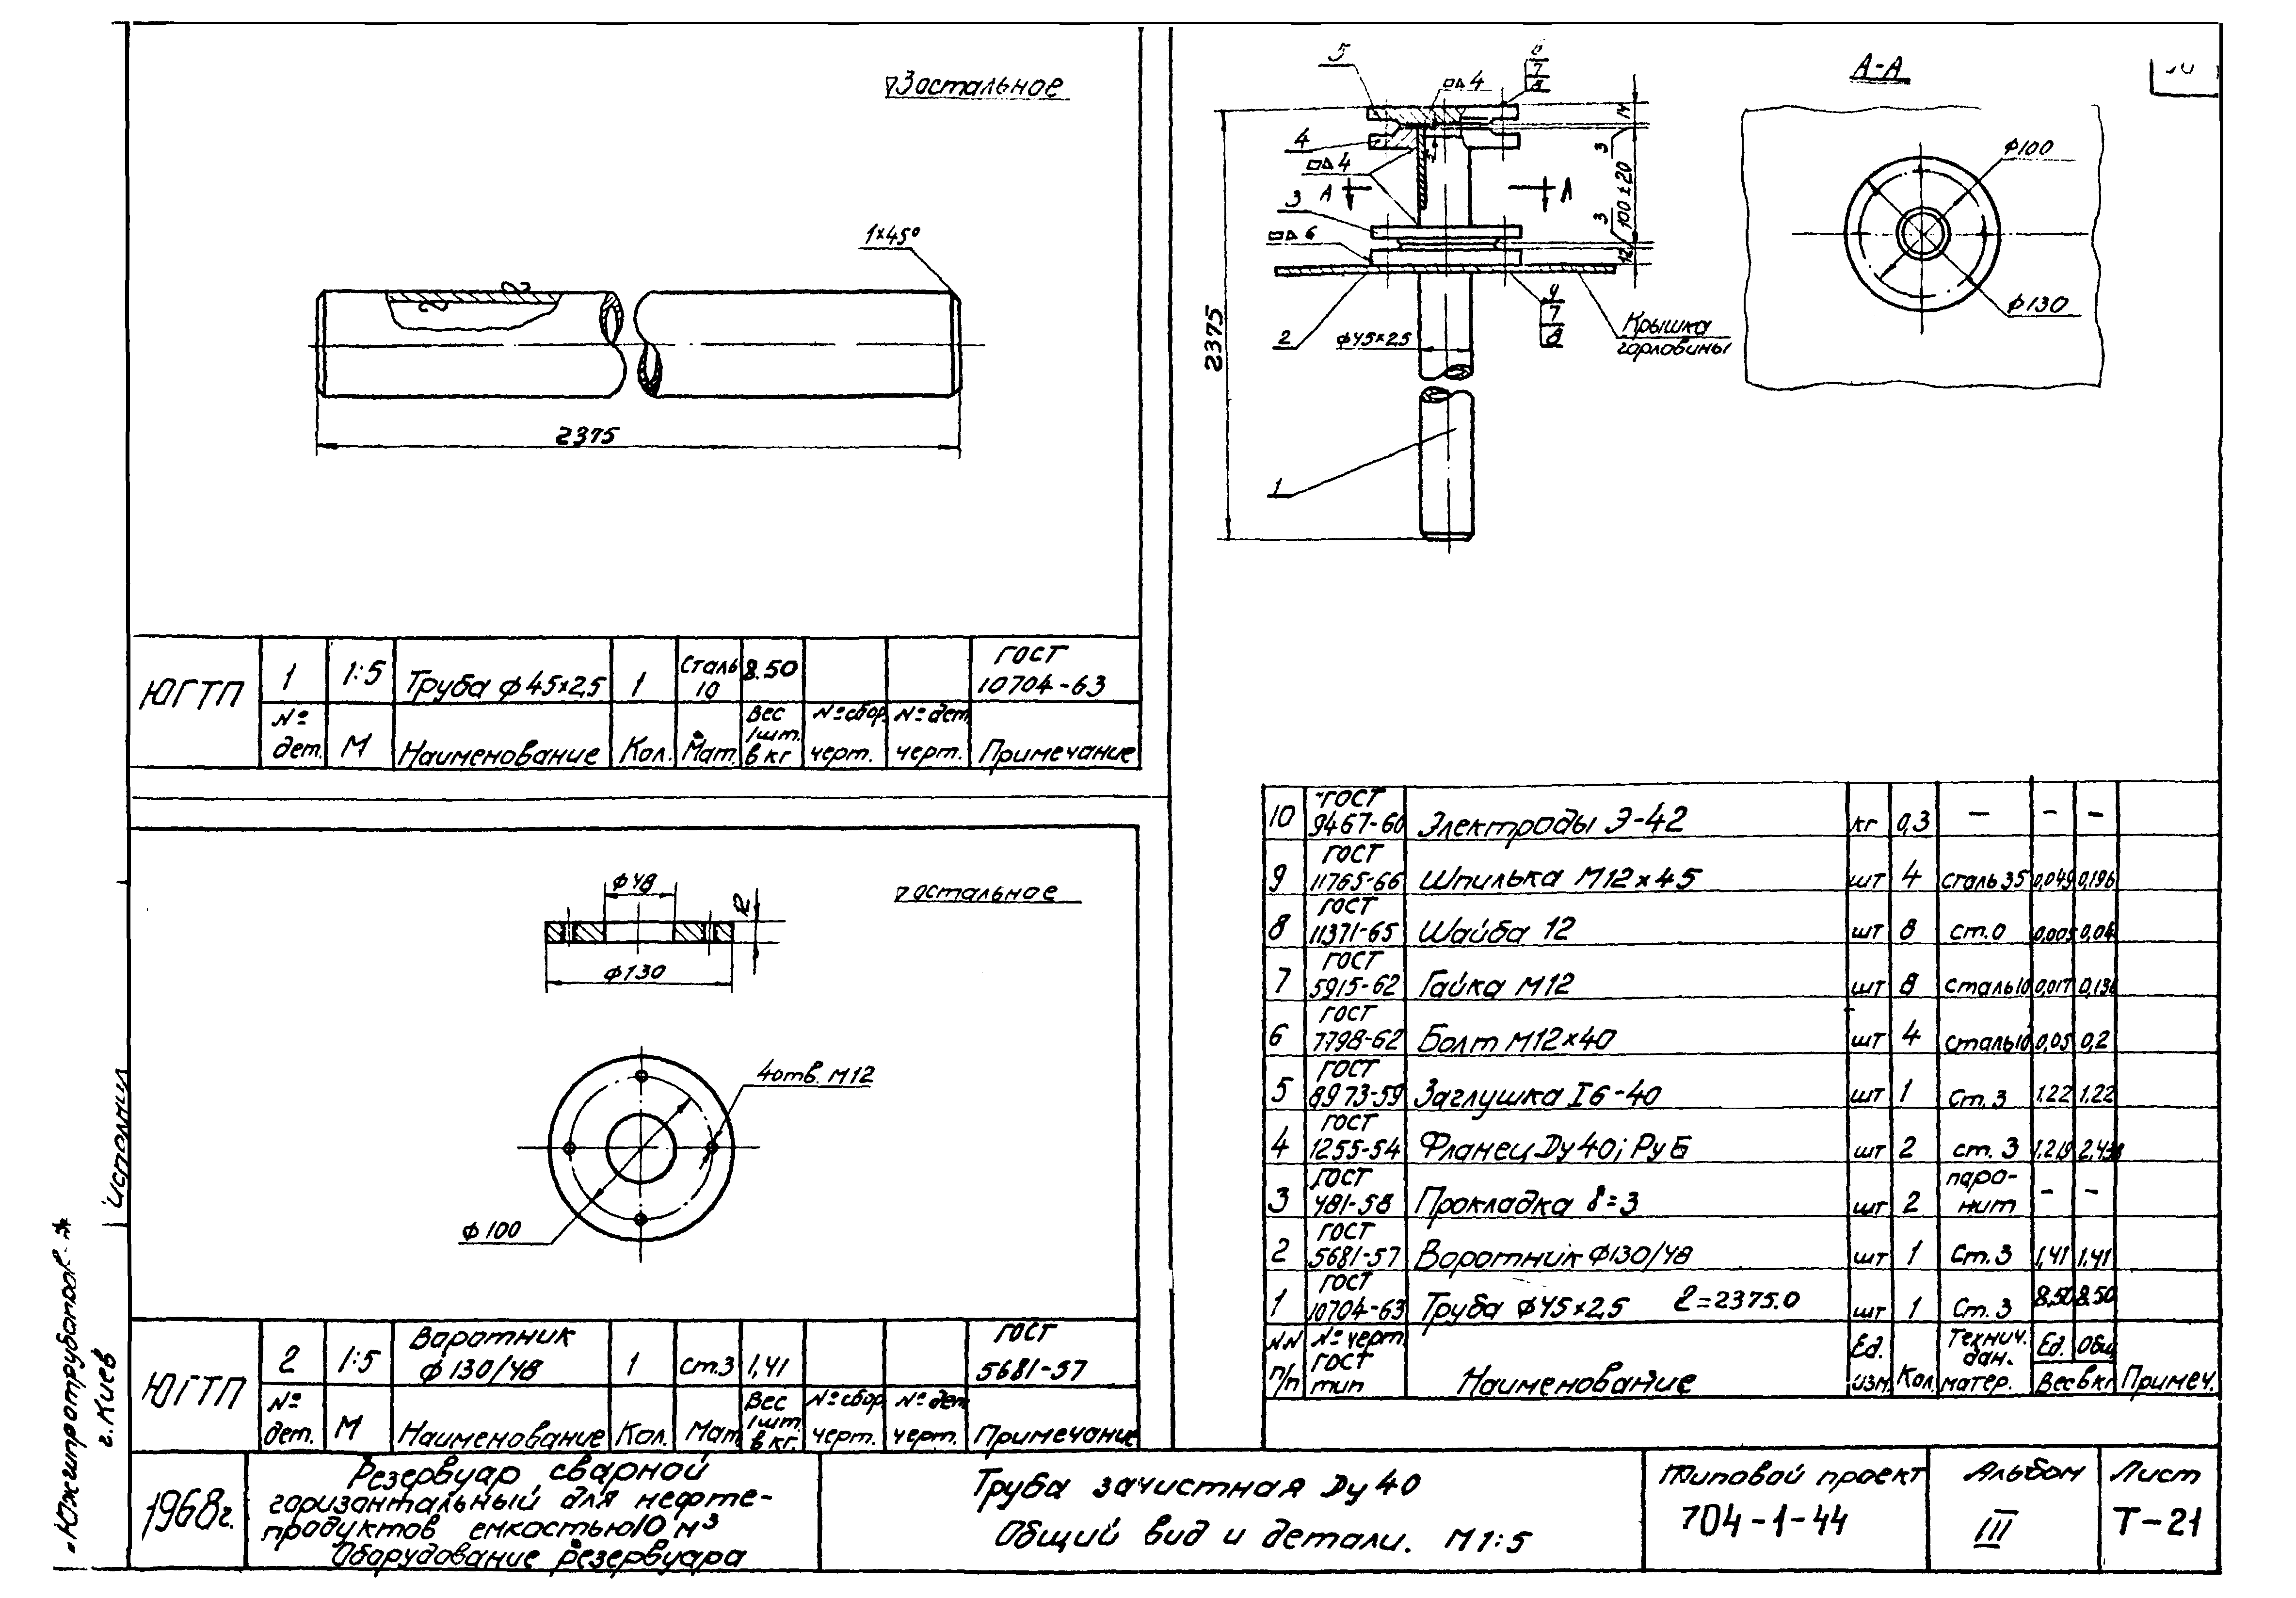 ▽3 остальное
1×45°
2375
ЮГТП
1
1:5
Труба ф45×2,5
1
Сталь 10
8.50
ГОСТ 10704-63
№ дет.
М
Наименование
Кол.
Мат.
Вес 1шт. в кг
№ сбор. черт.
№ дет. черт.
Примечание
остальное
ф48
12
ф130
4отв. М12
ф100
ЮГТП
2
1:5
Воротник ф130/48
1
ст.3
1,41
ГОСТ 5681-57
№ дет.
М
Наименование
Кол.
Мат
Вес 1шт. в кг.
№ сбор. черт.
№ дет черт.
Примечание
5
6
7
8
4
4
4
3
6
2
1
А
А
14
3
100±20
3
12
2375
ф45×2.5
9
7
8
Крышка
горловины
А-А
ф100
ф130
10 ГОСТ 9467-60 Электроды Э-42 кг 0,3 – – –
9 ГОСТ 11765-66 Шпилька М12×45 шт 4 сталь35 0,049 0,196
8 ГОСТ 11371-65 Шайба 12 шт 8 ст.0 0,005 0,04
7 ГОСТ 5915-62 Гайка М12 шт 8 сталь10 0,017 0,136
6 ГОСТ 7798-62 Болт М12×40 шт 4 сталь10 0,05 0,2
5 ГОСТ 8973-59 Заглушка I6-40 шт 1 Ст.3 1.22 1,22
4 ГОСТ 1255-54 Фланец Ду40; Ру6 шт 2 ст.3 1.219
3 ГОСТ 481-58 Прокладка δ=3 шт 2 паро-нит – –
2 ГОСТ 5681-57 Воротник ф130/48 шт 1 Ст.3 1,41 1,41
1 ГОСТ 10704-63 Труба ф45×2,5 ℓ=2375.0 шт 1 Ст.3 8,50 8.50
NN п/п
№ черт. ГОСТ тип
Наименование
Ед. изм.
Кол.
Технич. дан. матер.
Ед. Общ
Вес в кг
Примеч.
Исполнил
г. Киев
1968г.
Резервуар сварной
горизонтальный для нефте-
продуктов емкостью 10 м³
Оборудование резервуара
Труба зачистная Ду 40
Общий вид и детали. М 1:5
Типовой проект
704-1-44
Альбом
III
Лист
Т-21